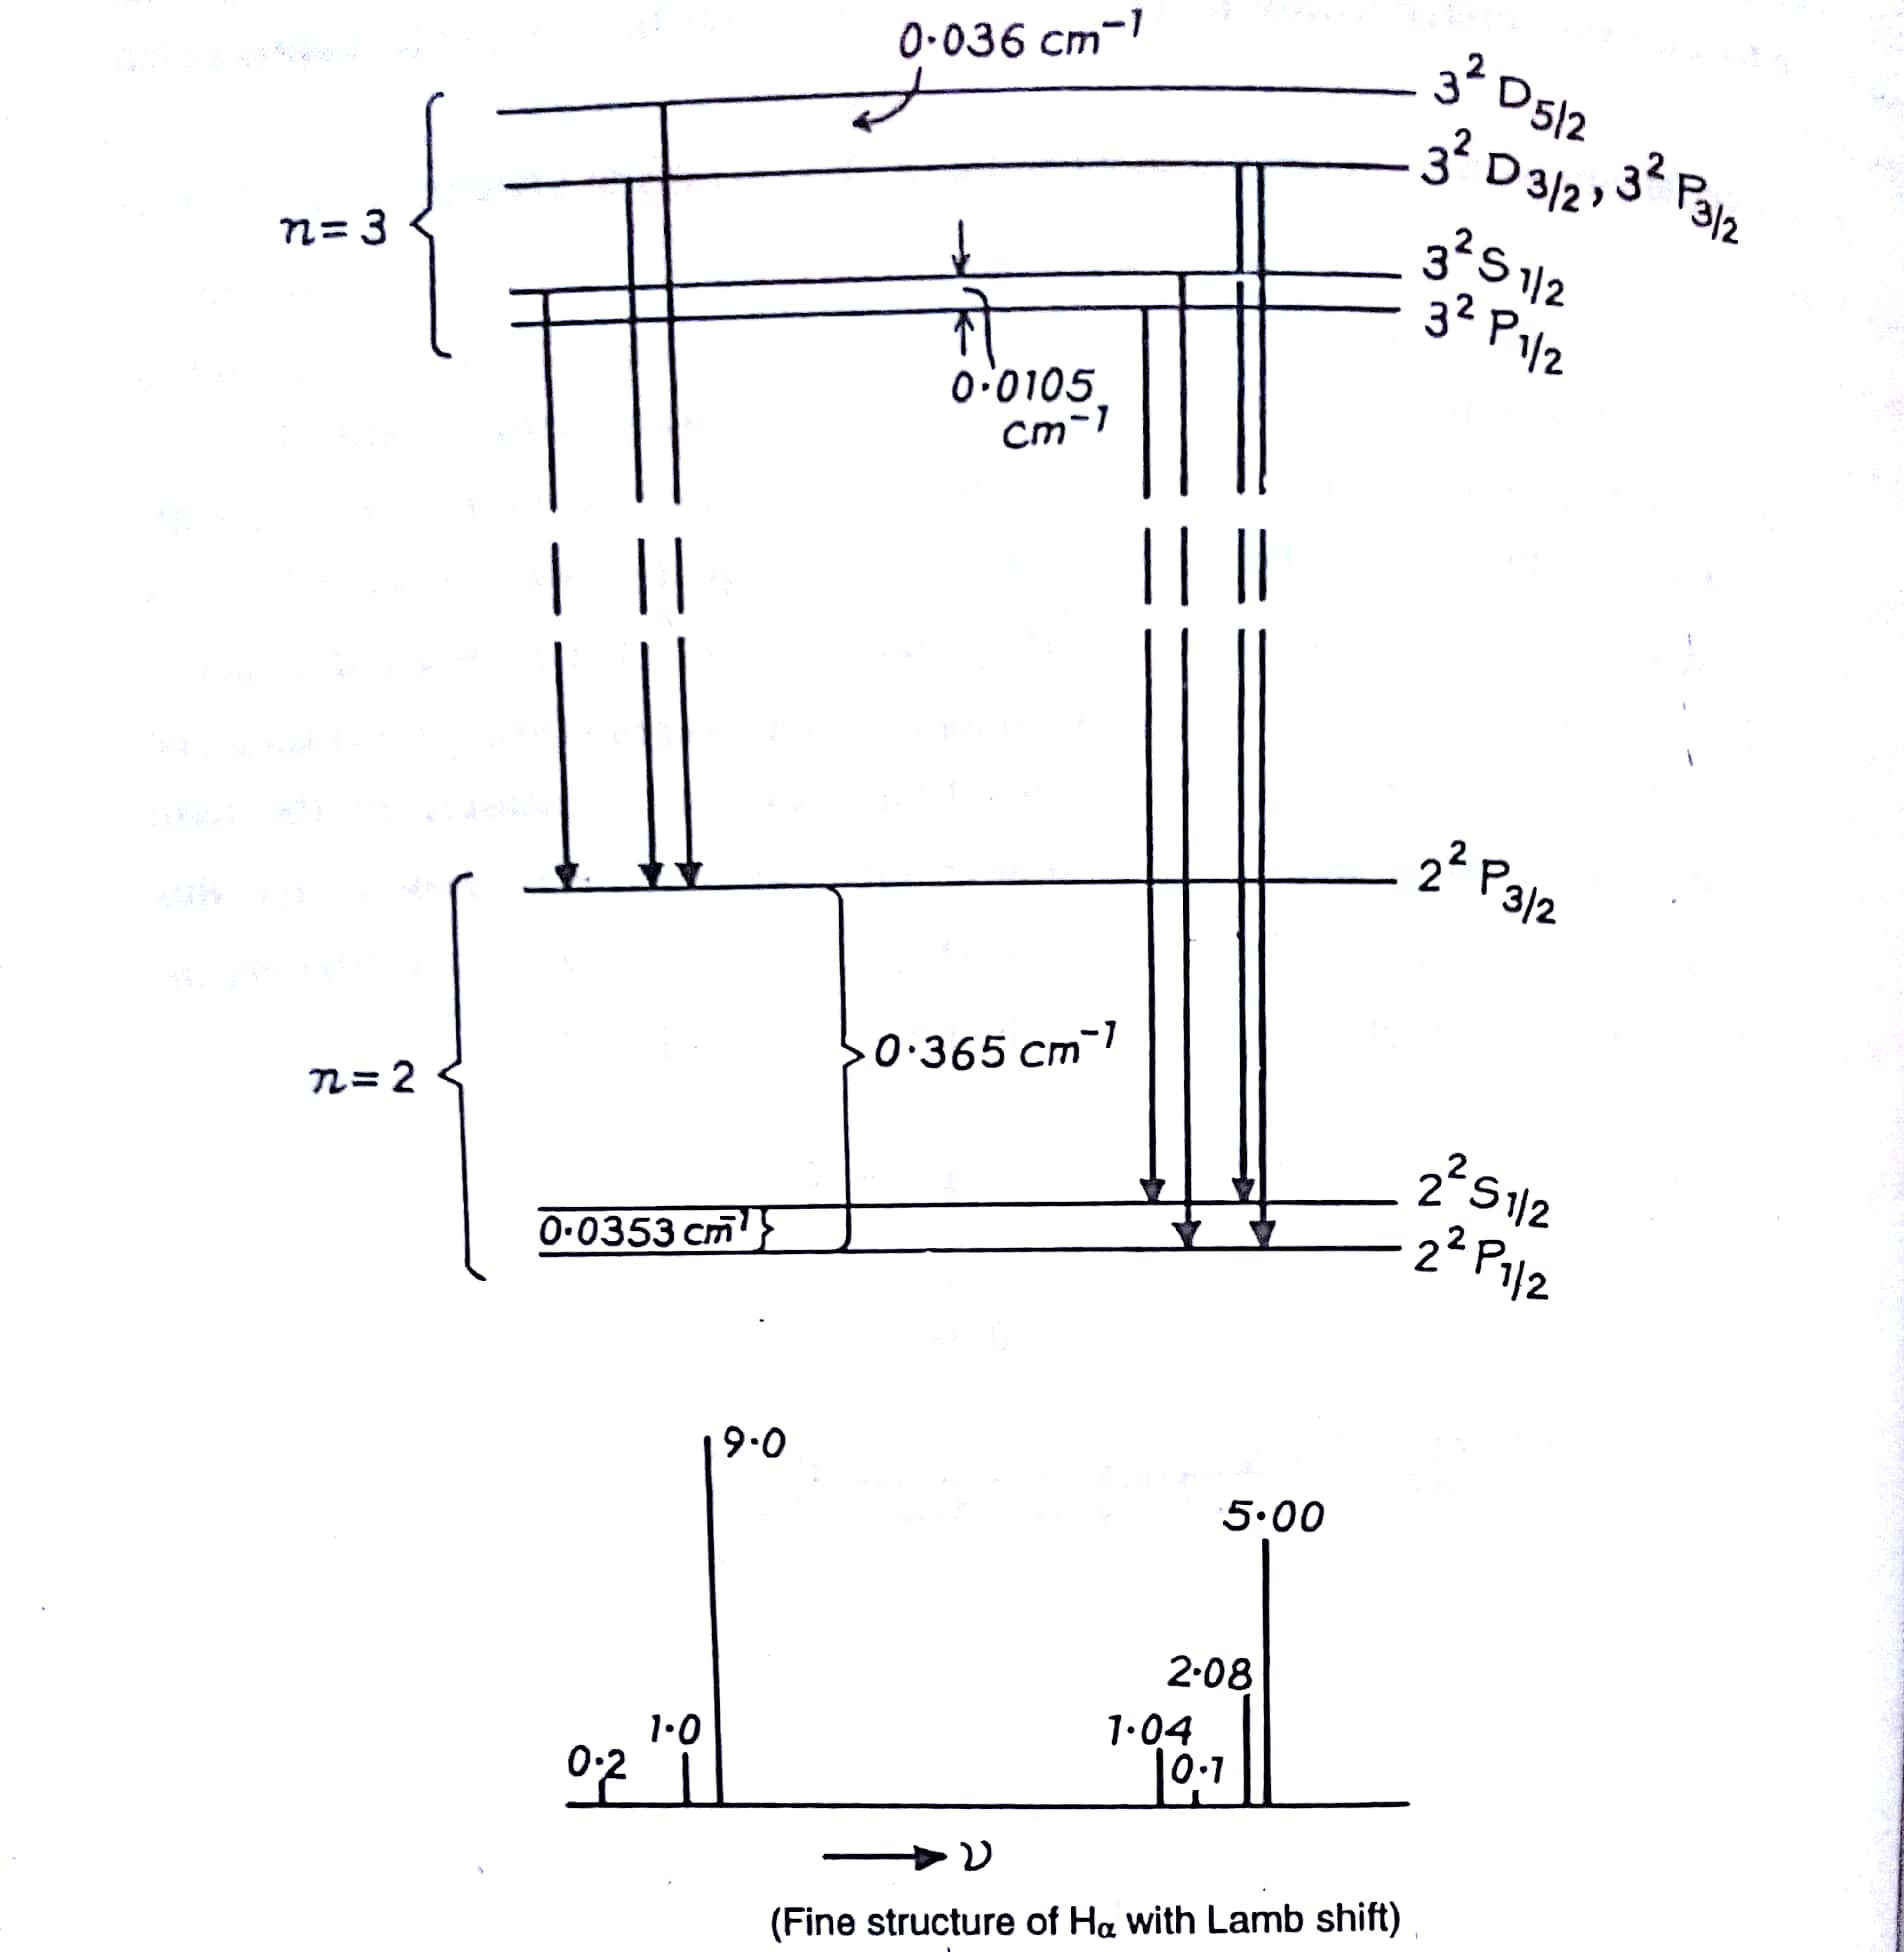 0·036 cm⁻¹
3² D₅/₂
3² D₃/₂, 3² P₃/₂
n=3
3² S₁/₂
3² P₁/₂
0·0105
cm⁻¹
2² P₃/₂
0·365 cm⁻¹
n=2
2² S₁/₂
0·0353 cm⁻¹
2² P₁/₂
9·0
5·00
2·08
1·0
1·04
0·2
0·1
ν
(Fine structure of Hα with Lamb shift)